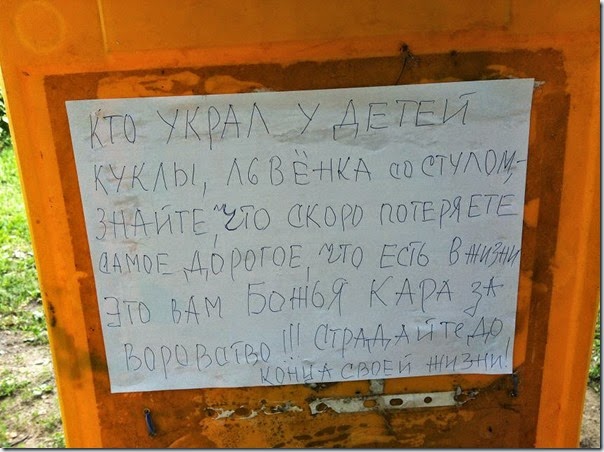 КТО УКРАЛ У ДЕТЕЙ
КУКЛЫ, ЛЬВЁНКА СО СТУЛОМ,-
ЗНАЙТЕ, ЧТО СКОРО ПОТЕРЯЕТЕ
САМОЕ ДОРОГОЕ, ЧТО ЕСТЬ В ЖИЗНИ
ЭТО ВАМ БОЖЬЯ КАРА ЗА
ВОРОВСТВО!!! СТРАДАЙТЕ ДО
КОНЦА СВОЕЙ ЖИЗНИ!